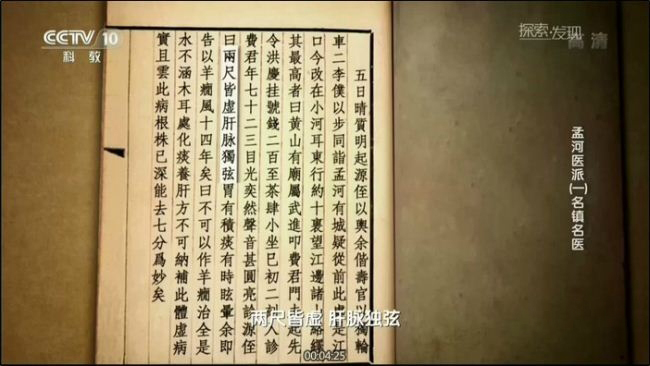 CCTV 10
科教
探索·发现
高清
孟河医派(一)名镇名医
五日晴質明起源侄以輿余偕壽官以獨輪
車二李僕以步同詣孟河有城疑從前此處是江
口今改在小河耳東行約十裏望江邊諸山絡繹
其最高者曰黃山有廟屬武進叩費君門去起先
令洪慶挂號錢二百至茶肆小坐巳初二刻入診
費君年七十二三目光奕然聲音甚圓亮診源侄
曰兩尺皆虛肝脉獨弦胃有積痰有時眩暈余即
告以羊癇風十四年矣曰不可以作羊癇治全是
水不涵木耳處化痰養肝方不可納補此體虛病
實且雲此病根株已深能去七分爲妙矣
两尺皆虚 肝脉独弦
00:04:25